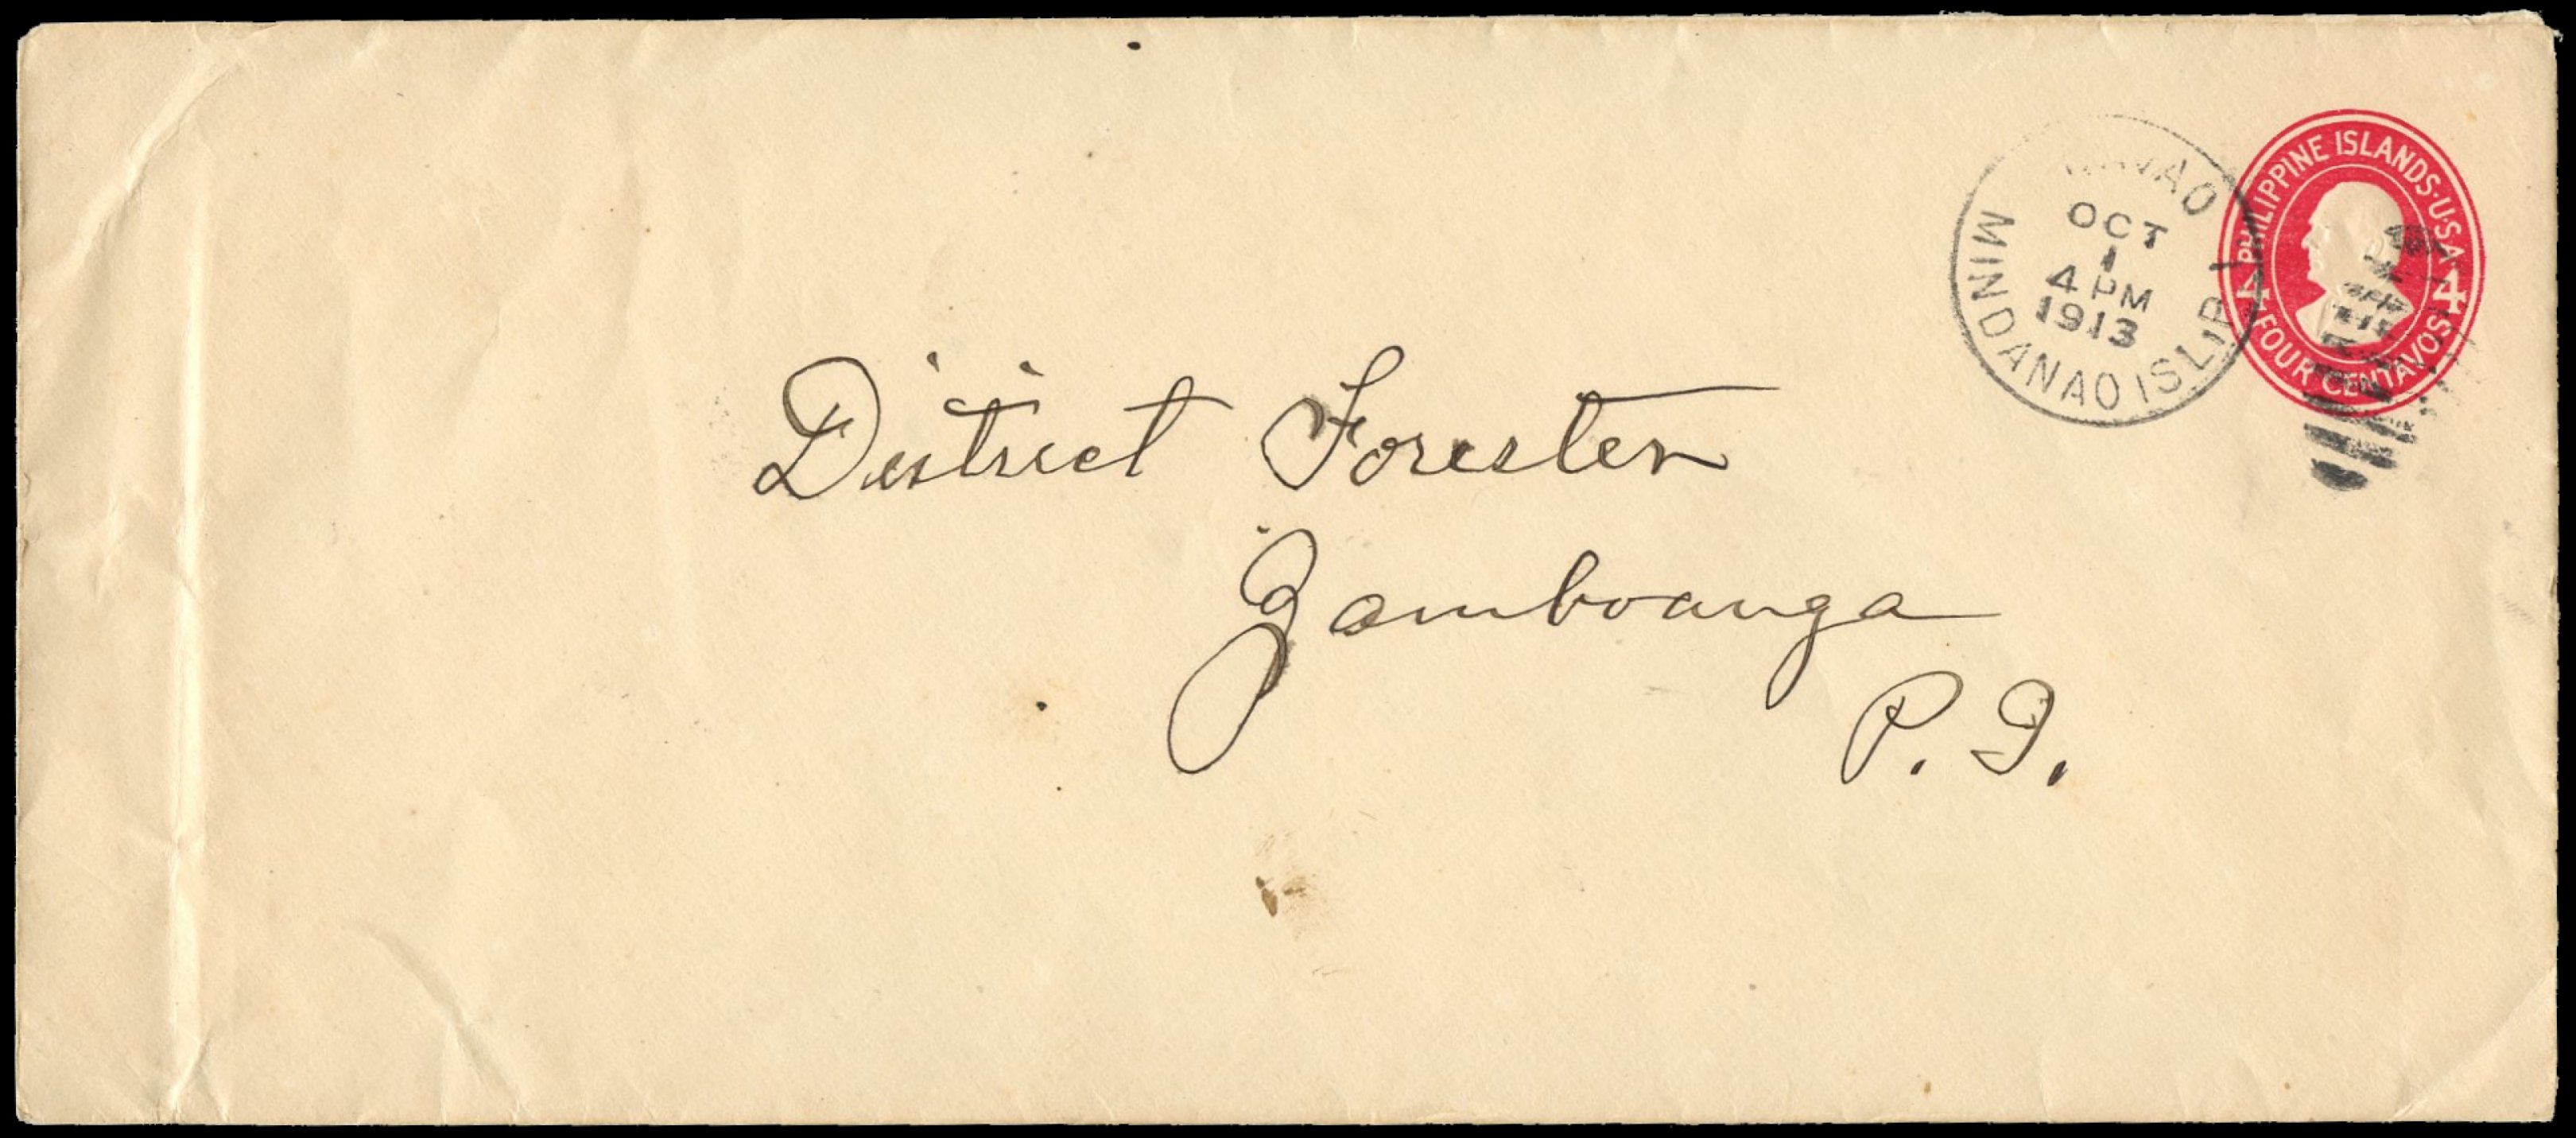 OCT
1
4 PM
1913
MINDANAO ISL. P. I.
PHILIPPINE ISLANDS·U.S.A.
4 4
FOUR CENTAVOS
District Forester
Zamboanga
P. I.